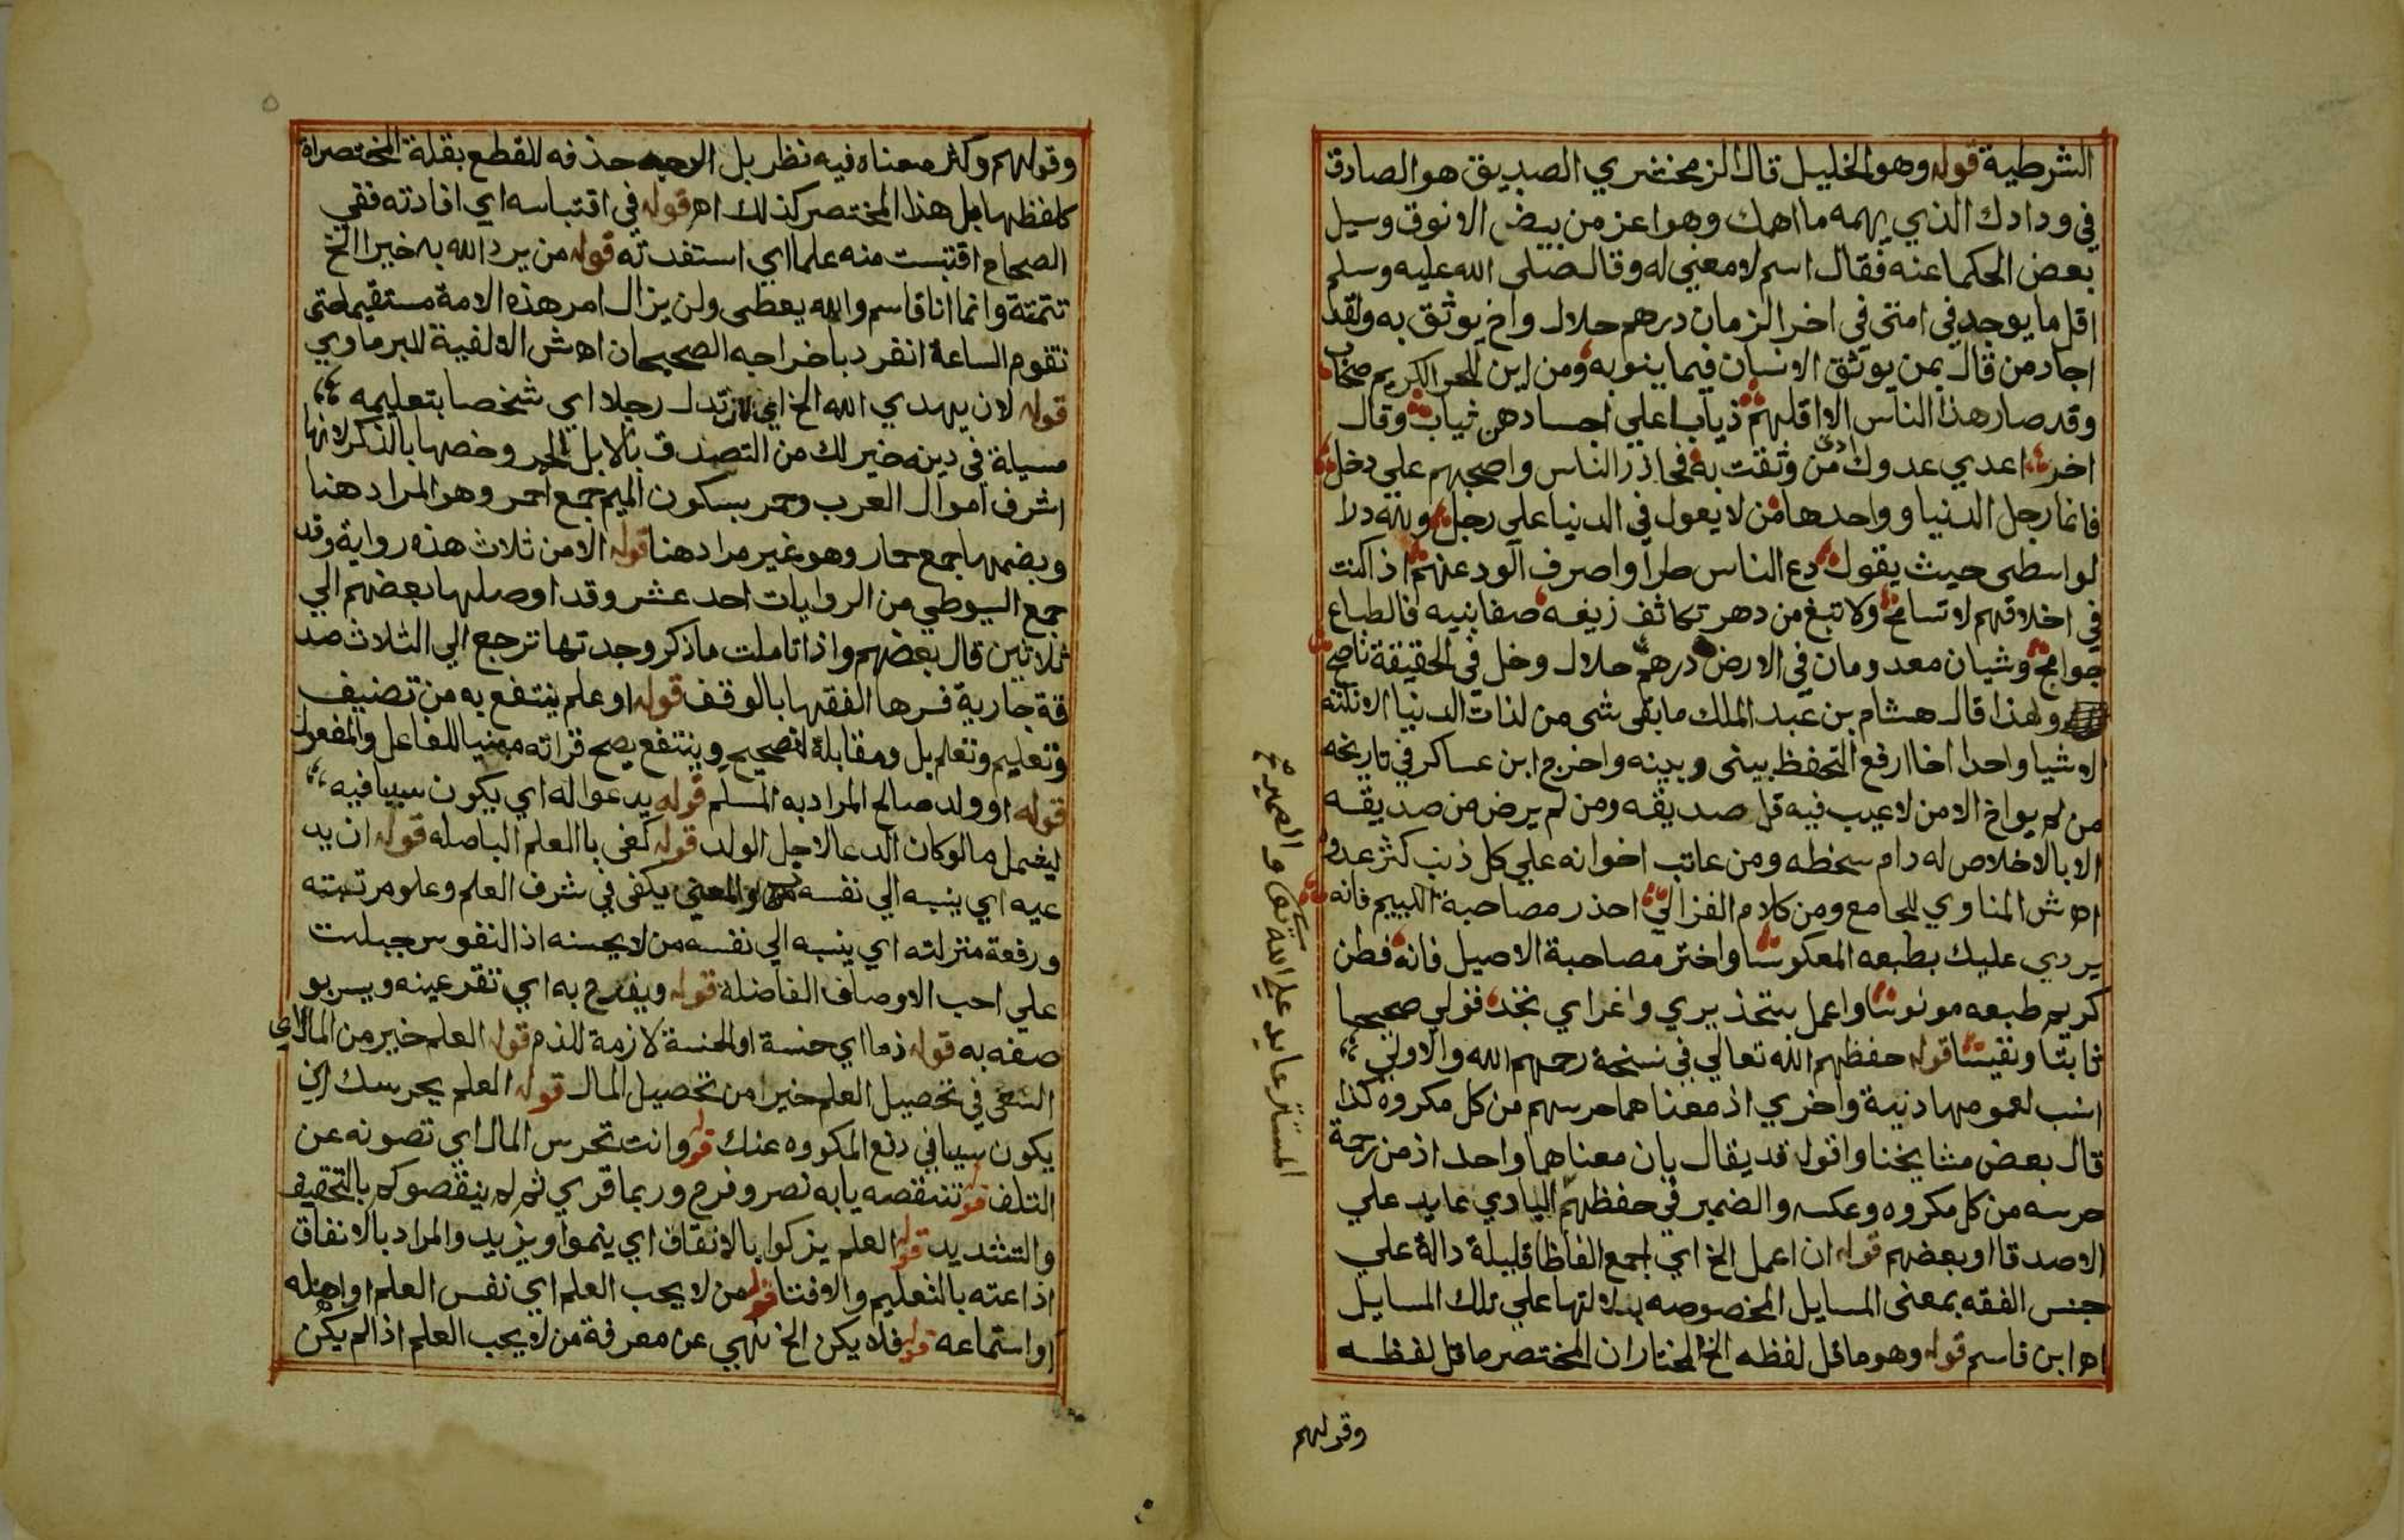 الشرطية قوله وهو الخليل قال الزمخشري الصديق هو الصادق
في ودادك الذي يهمه ما اهمك وهو اعز من بيض الانوق وسيل
بعض الحكما عنه فقال اسم لا معني له وقال صلى الله عليه وسلم
اقل ما يوجد في امتى في اخر الزمان درهم حلال واخ يوثق به ولقد
اجاد من قال بمن يوثق الانسان فيما ينوبه ومن اين للحر الكريم صحاب
وقد صار هذا الناس الا اقلهم ذيابا علي اجسادهن ثياب وقال
اخر اعدي عدوك ادنى من وثقت به فحاذر الناس واصحبهم علي دخل
فانما رجل الدنيا وواحدها من لا يعول في الدنيا على رجل ولله در ا
لواسطى حيث يقول دع الناس طرا واصرف الود عنهم اذا كنت
في اخلاقهم لا تسامح ولا تبغ من دهر تكاثف زيفه صفا بنيه فالطباع
جوامح وشيان معدومان في الارض درهم حلال وخل في الحقيقة ناصح
ولهذا قال هشام بن عبد الملك ما بقى شى من لذات الدنيا الا نلته
الا شيا واحدا اخا ارفع التحفظ بينى وبينه واخرج ابن عساكر في تاريخه
من لم يواخ الا من لا عيب فيه قل صديقه ومن لم يرض من صديقه
الا بالاخلاص له دام سخطه ومن عاتب اخوانه علي كل ذنب كثر عدوه
اهـ ش المناوي للجامع ومن كلام الغزالي احذر مصاحبة اللييم فانه
يردي عليك بطبعه المعكوسا واختر مصاحبة الاصيل فانه فطن
كريم طبعه مونوسا واعمل بتحذيري واغراي تجد قولي صحيحا
ثابتا ونفيسا قوله حفظهم الله تعالي في نسخة رحمهم الله والاولي
انسب لعمومها دنية واخري اذ معناهما حرسهم من كل مكروه كذا
قال بعض مشايخنا واقول قد يقال بان معناهما واحد اذ من رحمة
حرسه من كل مكروه وعكسه والضمير في حفظهم البادي عايد علي
الاصدقا او بعضهم قوله ان اعمل الخ اي اجمع الفاظا قليلة دالة علي
جنس الفقه بمعنى المسايل المخصوصه بدلالتها علي تلك المسايل
اهـ ابن قاسم قوله وهو ما قل لفظه الخ المختار ان المختصر ما قل لفظه
وقولهم
المستتر عايد علي الله تعالى والضمير
وقولهم وكثر معناه فيه نظر بل الاوجه حذفه للقطع بقلة المختصرات
كلفظها بل هذا المختصر كذلك اهـ قوله في اقتباسه اي افادته ففي
الصحاح اقتبست منه علما اي استفدته قوله من يرد الله به خيرا الخ
تتمتة وانما انا قاسم والله يعطى ولن يزال امر هذه الامة مستقيما حتى
تقوم الساعة انفرد باخراجه الصحيحان اهـ ش الالفية للبرماوي
قوله لان يهدي الله الخ اي تدل رجلا اي شخصا بتعليمه
مسيلة في دينه خير لك من التصدق بالابل الحمر وخصها بالذكر لانها
اشرف اموال العرب وحمر بسكون الميم جمع احمر وهو المراد هنا
وبضمها جمع حمار وهو غير مراد هنا قوله الا من ثلاث هذه رواية وقد
جمع السيوطي من الروايات احد عشر وقد اوصلها بعضهم الي
ثلاثين قال بعضهم واذا تاملت ما ذكر وجدتها ترجع الي الثلاث صد
قة جارية فسرها الفقها بالوقف قوله او علم ينتفع به من تصنيف
وتعليم وتعلم بل ومقابلة لتصحيح وينتفع يصح قراته مبنيا للفاعل والمفعول
قوله او ولد صالح المراد به المسلم قوله يدعوا له اي يكون سببا فيه
ليشمل ما لو كان الدعا لاجل الولد قوله كفى بالعلم البا صله قوله ان يد
عيه اي ينسبه الي نفسه والمعني يكفى في شرف العلم وعلو مرتبته
ورفعة منزلته اي ينسبه الي نفسه من لا يحسنه اذ النفوس جبلت
علي احب الاوصاف الفاضلة قوله ويفرح به اي تقر عينه ويسر بو
صفه به قوله ذما اي خسة او الخسة لازمة للذم قوله العلم خير من المال اي
السعي في تحصيل العلم خيرا من تحصيل المال قوله العلم يحرسك اي
يكون سببا في دفع المكروه عنك قوله وانت تحرس المال اي تصونه عن
التلف قوله تنقصه يا به نصر وفرح وربما قري ثم لم ينقصوكم بالتخفيف
والتشديد قوله العلم يزكوا بالانفاق اي ينموا ويزيد والمراد بالانفاق
اذاعته بالتعليم والافتا قوله من لا يحب العلم اي نفس العلم او اهله
او استماعه قوله فلا يكن الخ نهي عن معرفة من لا يحب العلم اذا لم يكن